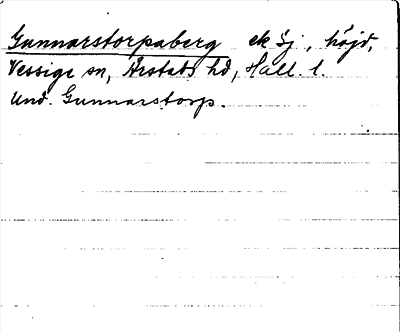 Gunnarstorpaberg ek Sj, höjd,
Vessige sn, Årstads hd, Hall. l.
Und. Gunnarstorp.